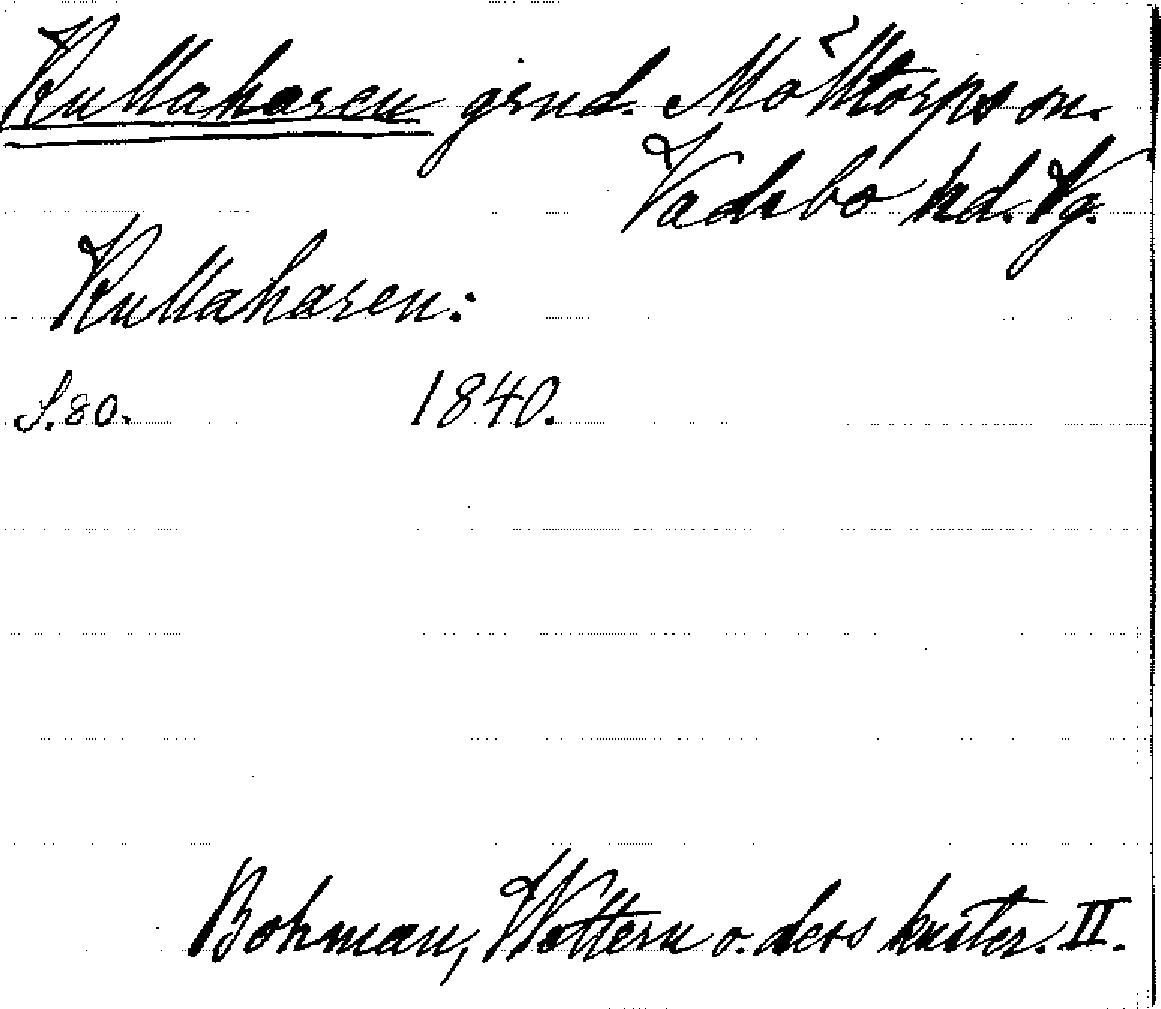 Kullaharen grnd. Mölltorps sn.
Vadsbo hd. Vg.
Kullaharen:
S. 80. 1840.
Bohman, Wettern o. dess kuster. II.